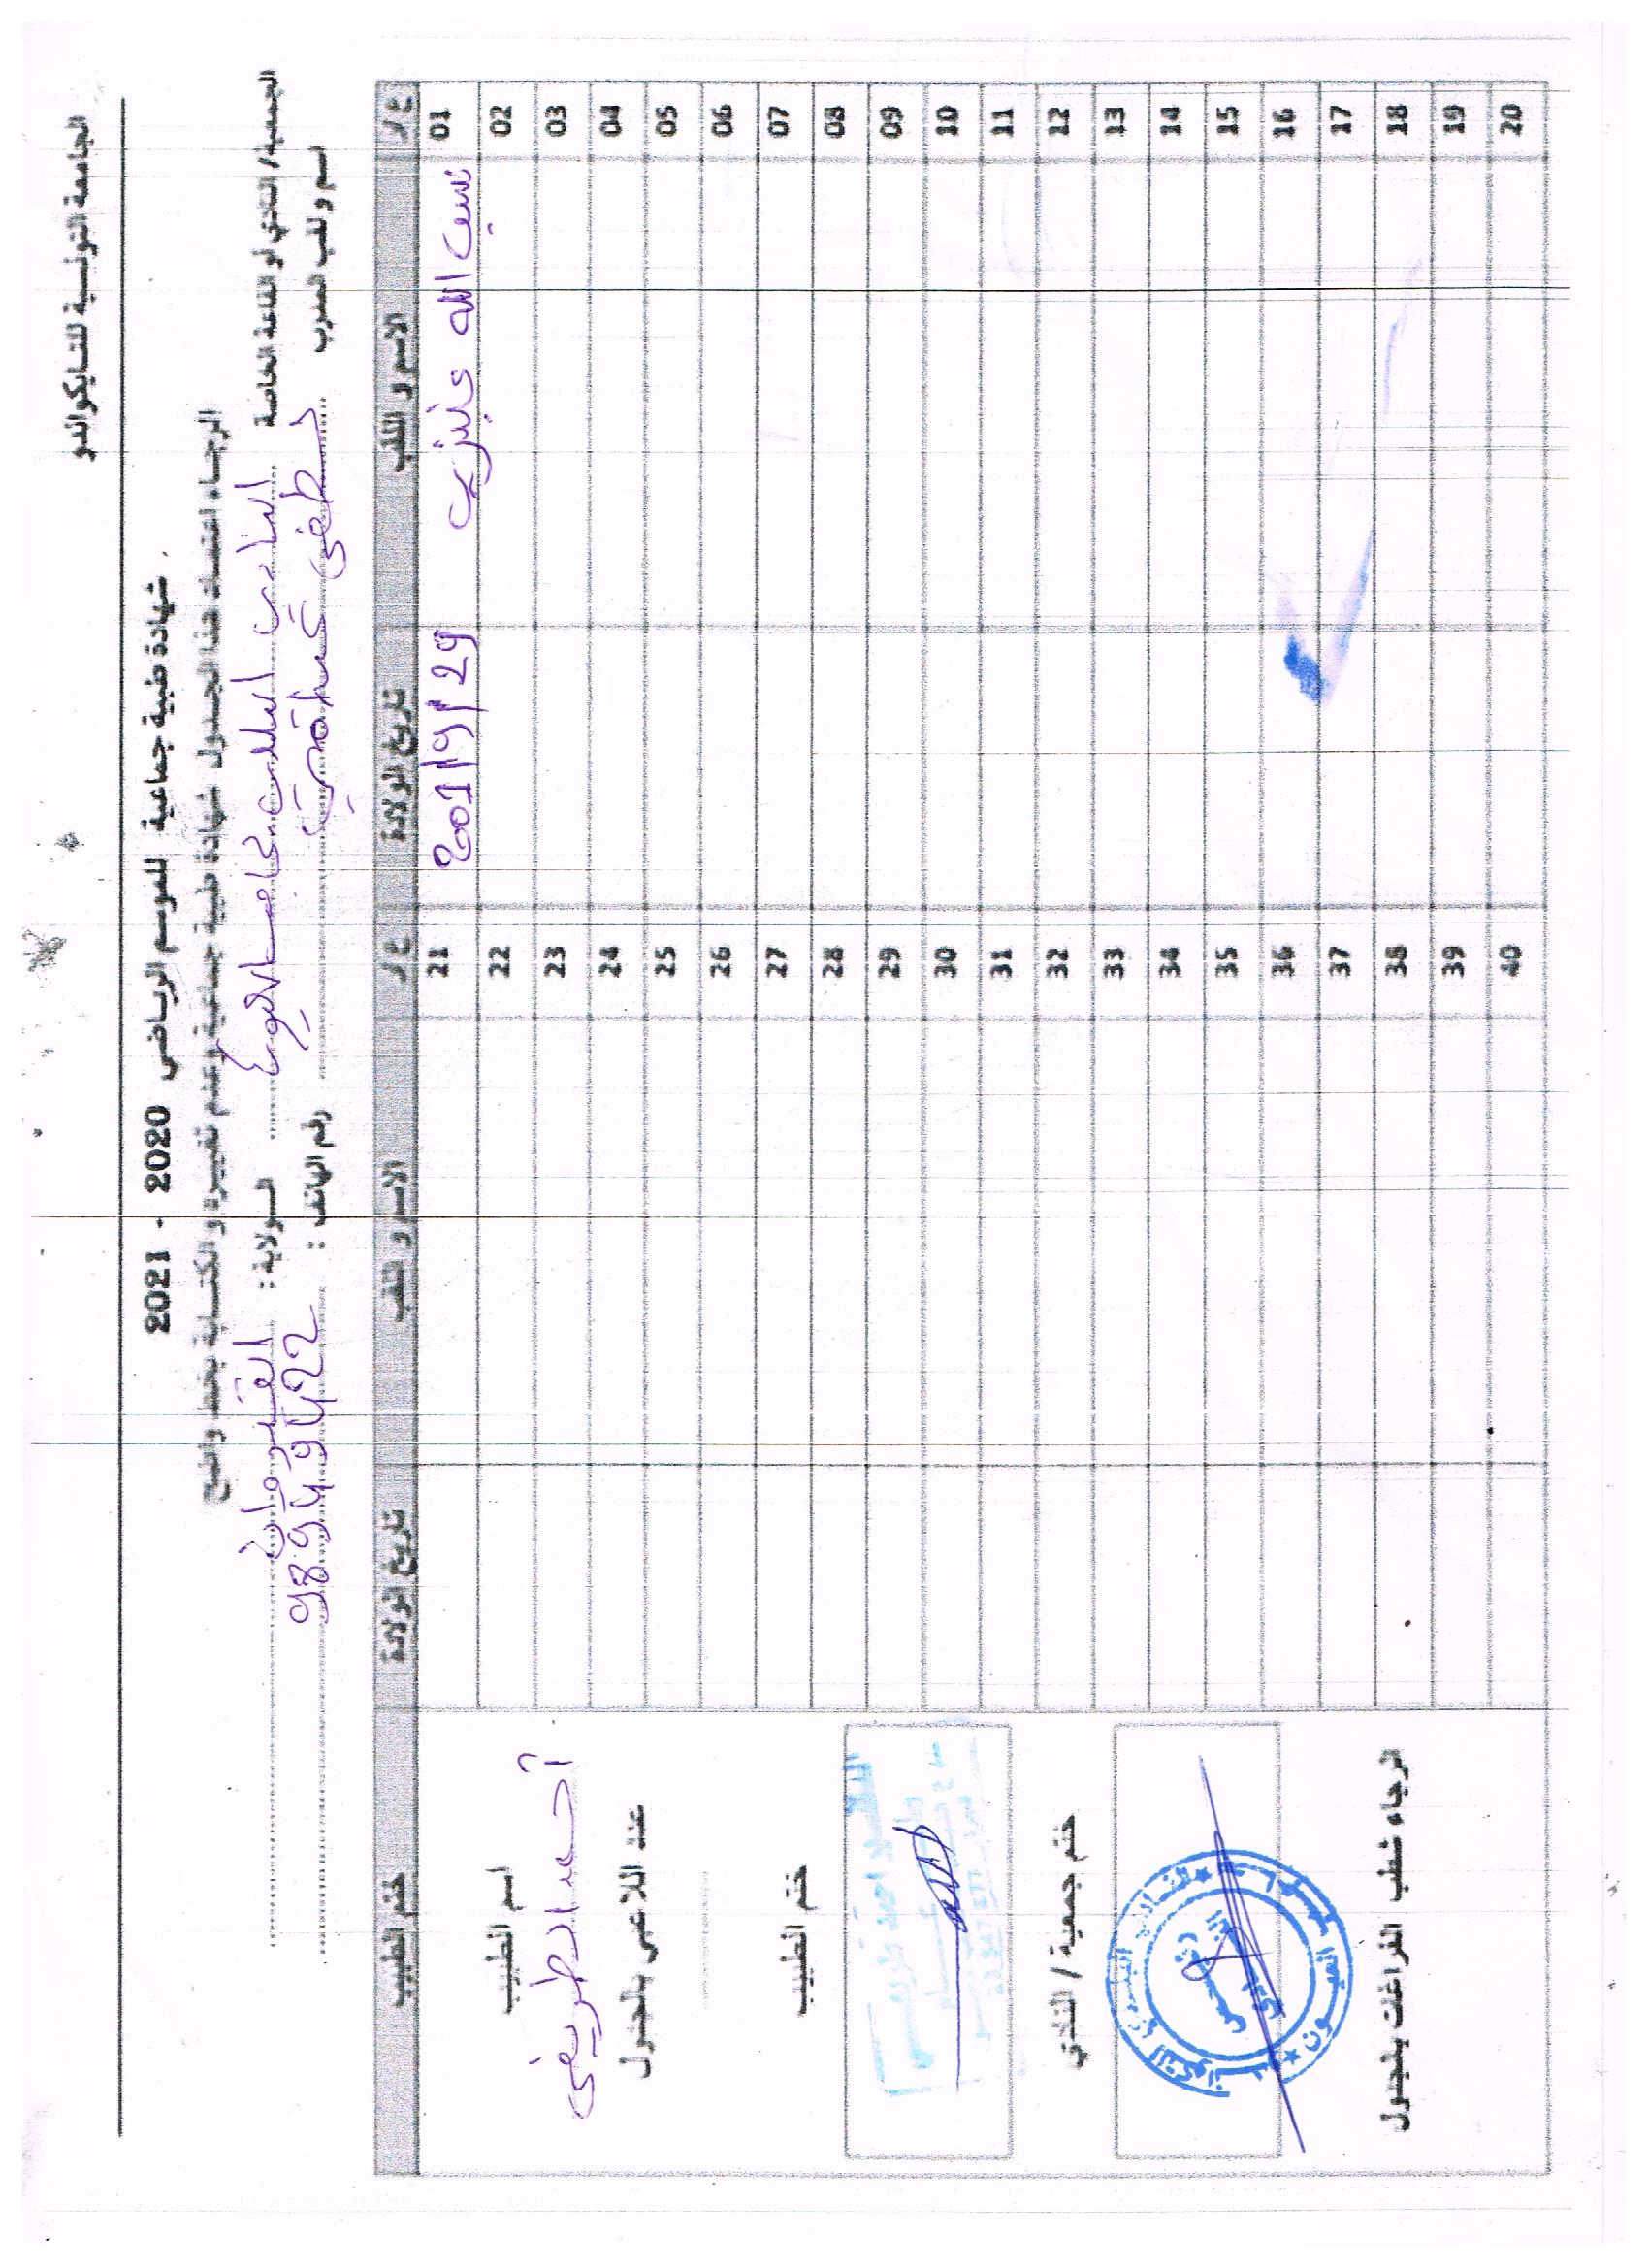 الجامعة التونسية للتايكواندو
شهادة طبية جماعية للموسم الرياضي 2020 - 2021
الرجاء اعتماد هذا الجدول شهادة طبية جماعية وعدم تغييره و الكتابة بخط واضح
الجمعية / النادي أو القاعة الخاصة النادي الولاية : القيروان
اسم و لقب المدرب رقم الهاتف : 98949422
ع/ر الاسم و اللقب تاريخ الولادة ع/ر الاسم و اللقب تاريخ الولادة ختم الطبيب
01 الله 2001/9/29 21
02 22 اسم الطبيب
03 23 أحمد الطريفي
04 24
05 25 عدد اللاعبي بالجدول
06 26
07 27
08 28 ختم الطبيب
09 29
10 30
11 31
12 32 ختم جمعية / النادي
13 33
14 34
15 35
16 36
17 37
18 38 الرجاء شطب الفراغات بالجدول
19 39
20 40